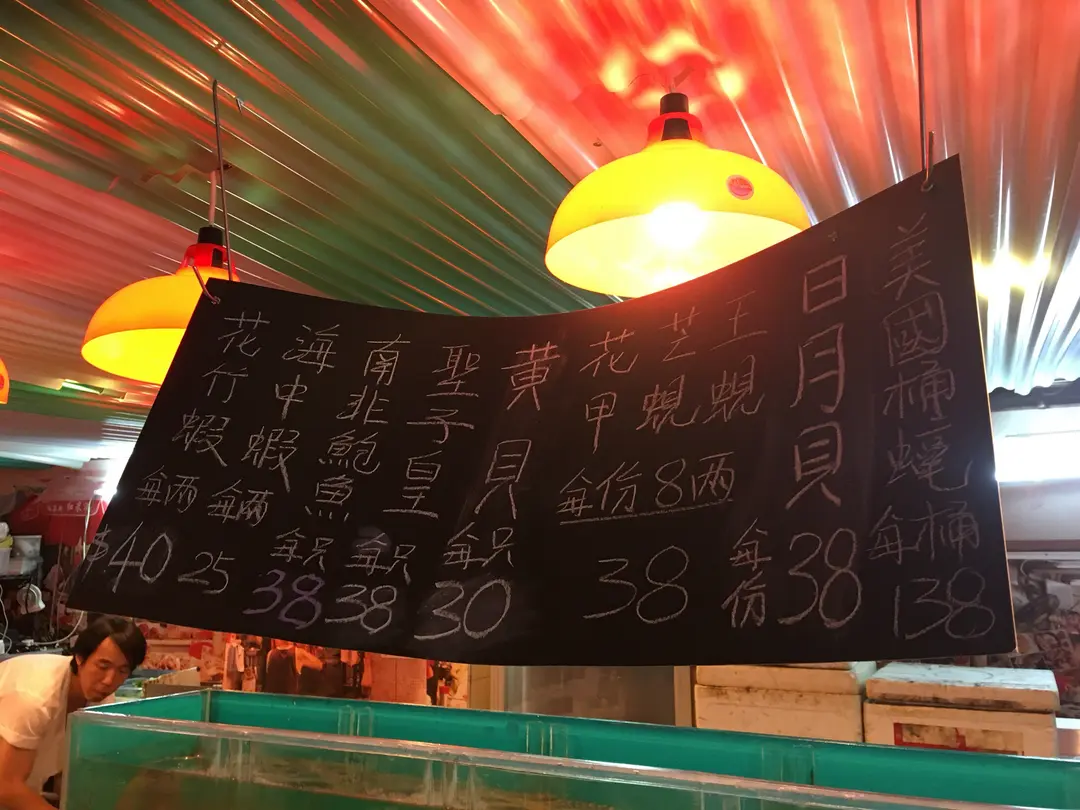 美國桶蠔每桶138
日月貝每份38
王蜆
芝蜆
花甲
每份8兩
38
黃貝每只30
聖子皇每只38
南非鮑魚每只38
海中蝦每兩25
花竹蝦每兩$40